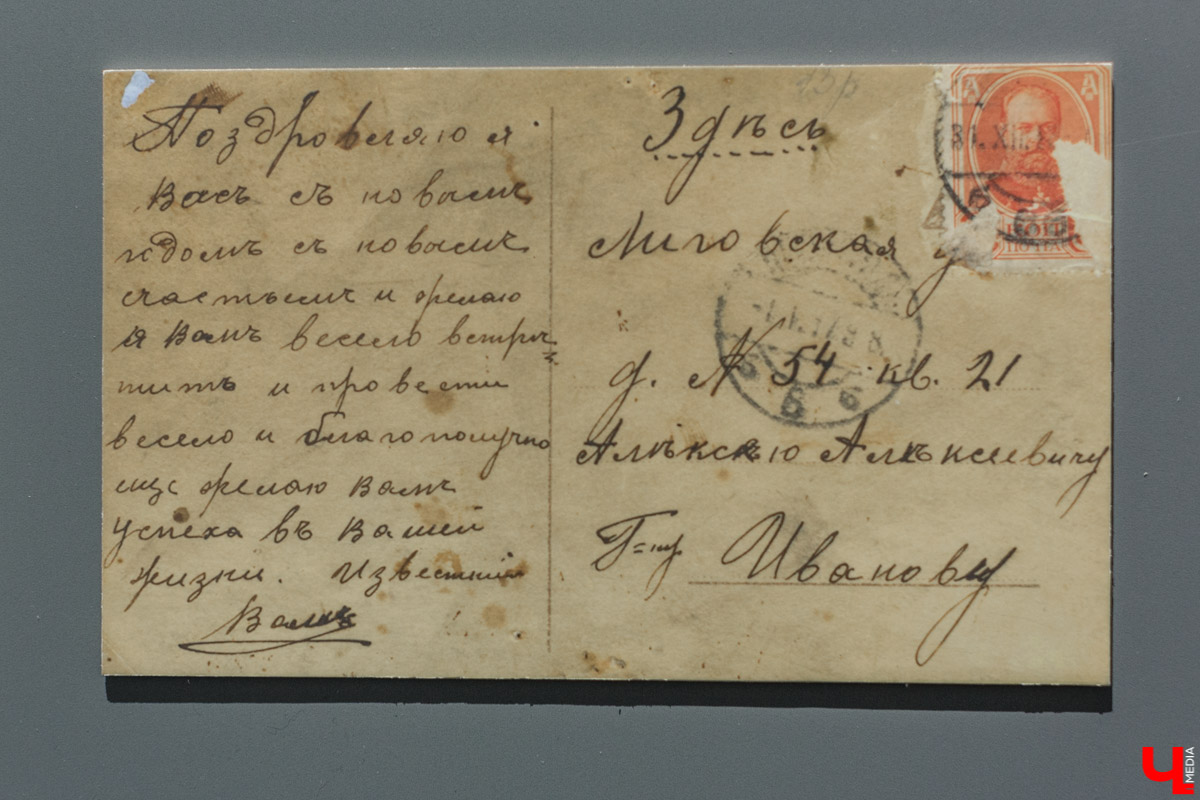 Поздровляю я
Васъ съ новымъ
годомъ съ новымъ
счастьемъ и желаю
я Вамъ весело встре
тить и провести
весело и благополучно
еще желаю Вамъ
успеха въ Вашей
жизни. Известний
Вамъ
Здѣсь
Лиговская у
д. № 54 кв. 21
Алѣксѣю Алѣксеевичу
Г=ну Иванову
31.XII.
Ч MEDIA